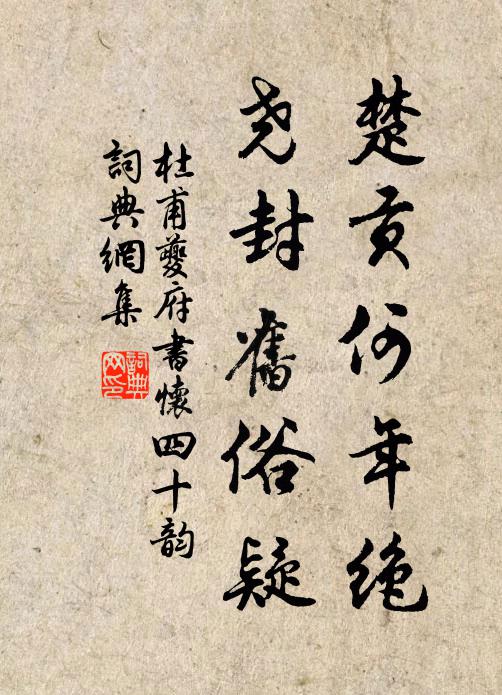 楚贡何年绝
尧封舊俗疑
杜甫夔府書懷四十韵
詞典網集
詞典网印